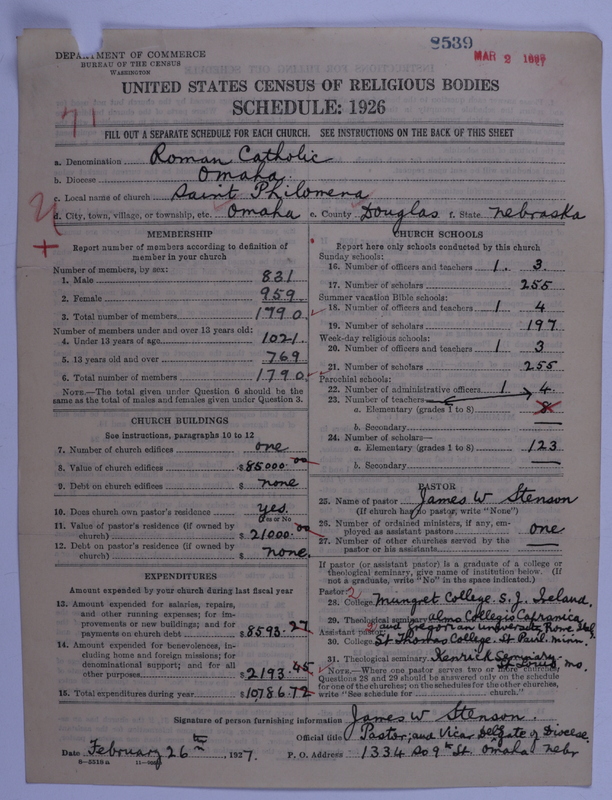 8539
MAR 2 1927
DEPARTMENT OF COMMERCE
BUREAU OF THE CENSUS
WASHINGTON
UNITED STATES CENSUS OF RELIGIOUS BODIES
SCHEDULE: 1926
71
FILL OUT A SEPARATE SCHEDULE FOR EACH CHURCH. SEE INSTRUCTIONS ON THE BACK OF THIS SHEET
a. Denomination Roman Catholic
b. Diocese Omaha
c. Local name of church Saint Philomena
d. City, town, village, or township, etc. Omaha e. County Douglas f. State Nebraska
MEMBERSHIP
Report number of members according to definition of
member in your church
Number of members, by sex:
1. Male 831
2. Female 959
3. Total number of members 1790
Number of members under and over 13 years old:
4. Under 13 years of age 1021
5. 13 years old and over 769
6. Total number of members 1790
NOTE.—The total given under Question 6 should be the
same as the total of males and females given under Question 3.
CHURCH BUILDINGS
See instructions, paragraphs 10 to 12
7. Number of church edifices one
8. Value of church edifices $85000.00
9. Debt on church edifices $ none
10. Does church own pastor's residence yes
Yes or No
11. Value of pastor's residence (if owned by
church) $21000.00
12. Debt on pastor's residence (if owned by
church) $ none.
EXPENDITURES
Amount expended by your church during last fiscal year
13. Amount expended for salaries, repairs,
and other running expenses; for im-
provements or new buildings; and for
payments on church debt $8593.27
14. Amount expended for benevolences, in-
cluding home and foreign missions; for
denominational support; and for all
other purposes $2193.45
15. Total expenditures during year $10786.72
CHURCH SCHOOLS
Report here only schools conducted by this church
Sunday schools:
16. Number of officers and teachers 1. 3.
17. Number of scholars 255
Summer vacation Bible schools:
18. Number of officers and teachers 1 4
19. Number of scholars 197
Week-day religious schools:
20. Number of officers and teachers 1 3
21. Number of scholars 255
Parochial schools:
22. Number of administrative officers 1 4.
23. Number of teachers
a. Elementary (grades 1 to 8) 8
b. Secondary —
24. Number of scholars—
a. Elementary (grades 1 to 8) 123
b. Secondary —
PASTOR
25. Name of pastor James W Stenson
(If church has no pastor, write "None")
26. Number of ordained ministers, if any, em-
ployed as assistant pastors one
27. Number of other churches served by the
pastor or his assistants —
If pastor (or assistant pastor) is a graduate of a college or
theological seminary, give name of institution below. (If
not a graduate, write "No" in the space indicated.)
Pastor: 2
28. College Mungret College. S. J. Ireland.
29. Theological seminary Almo Collegio Capranica
and Gregorian University, Rome
Assistant pastor:
30. College St Thomas College. St Paul. Minn.
31. Theological seminary Kenrick Seminary
St Louis Mo.
NOTE.—Where one pastor serves two or more churches,
Questions 28 and 29 should be answered only on the schedule
for one of the churches; on the schedules for the other churches,
write "See schedule for church."
Signature of person furnishing information James W Stenson.
Official title Pastor; and Vicar Delegate of Diocese
Date February 26th, 1927. P. O. Address 1334 So 9th St. Omaha Nebr
8—5519a